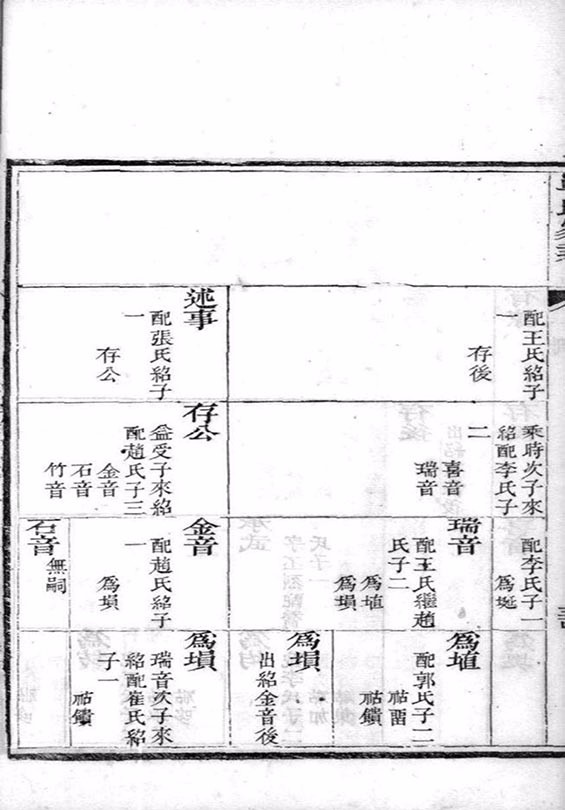 配王氏紹子
一
存後
述事
配張氏紹子
一
存公
乘時次子來
紹配李氏子
二
喜音
瑞音
存公
益受子來紹
配趙氏子三
金音
石音
竹音
配李氏子一
爲埏
瑞音
配王氏繼趙
氏子二
爲埴
爲塤
金音
配趙氏紹子
一
爲塤
石音
無嗣
爲埴
配郭氏子二
祜
祜鐼
爲塤
出紹金音後
爲塤
瑞音次子來
紹配崔氏紹
子一
祜鐼